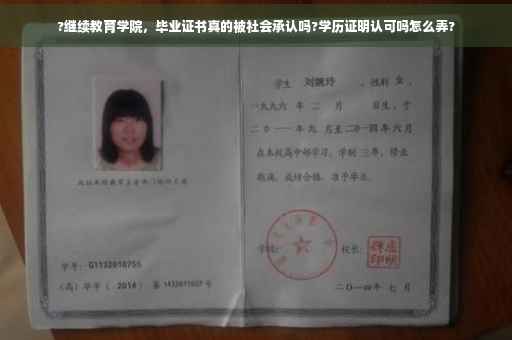 ?继续教育学院，毕业证书真的被社会承认吗?学历证明认可吗怎么弄?
学生 刘婉玲 ，性别 女 ，
一九九六 年 二 月 日生，于
二〇一一 年 九 月至 二〇一四 年 六 月
在本校高中部学习，学制 三年，修业
期满，成绩合格，准予毕业。
学号：G1132010755
（高）毕字（ 2014 ）第 1432011027 号
学校：
校长：
二〇一四年 七 月